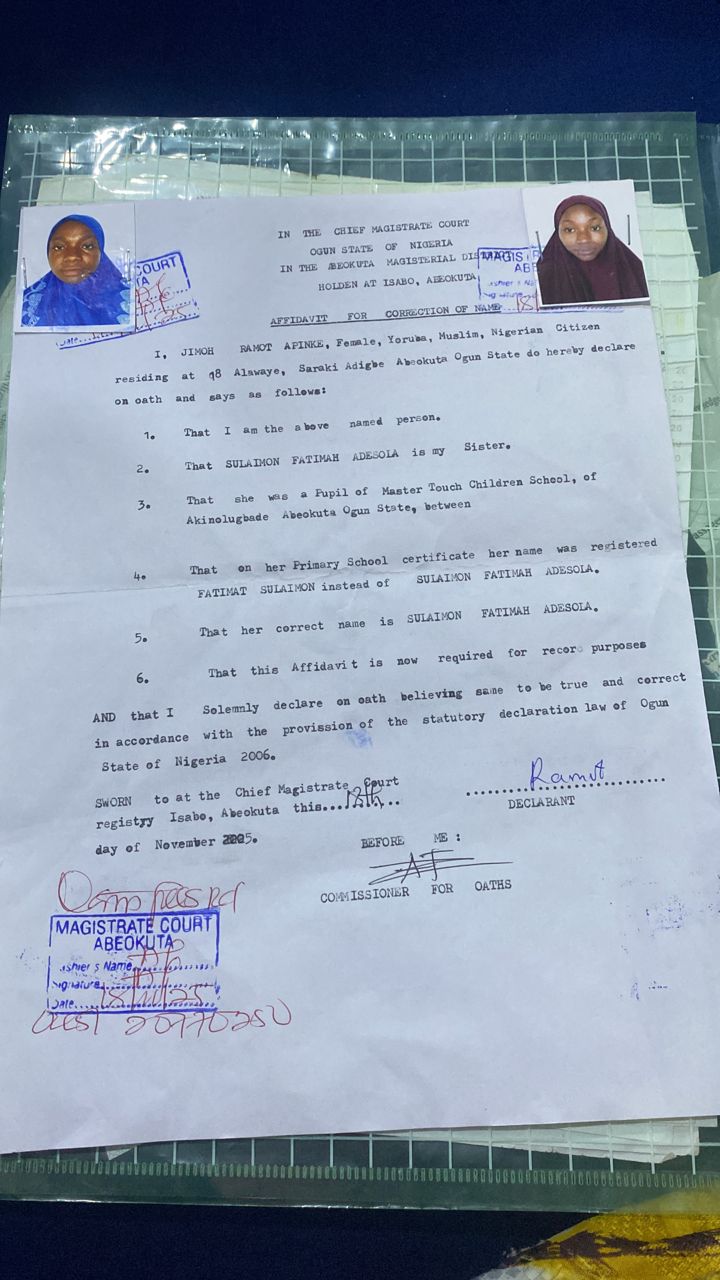 IN THE CHIEF MAGISTRATE COURT
OGUN STATE OF NIGERIA
IN THE ABEOKUTA MAGISTERIAL DIST
HOLDEN AT ISABO, ABEOKUTA
COURT
MAGIS
AB
AFFIDAVIT FOR CORRECTION OF NAME
I, JIMOH RAMOT APINKE, Female, Yoruba, Muslim, Nigerian Citizen
residing at 98 Alawaye, Saraki Adigbe Abeokuta Ogun State do hereby declare
on oath and says as follows:
1. That I am the above named person.
2. That SULAIMON FATIMAH ADESOLA is my Sister.
3. That she was a Pupil of Master Touch Children School, of
Akinolugbade Abeokuta Ogun State, between
4. That on her Primary School certificate her name was registered
FATIMAT SULAIMON instead of SULAIMON FATIMAH ADESOLA.
5. That her correct name is SULAIMON FATIMAH ADESOLA.
6. That this Affidavit is now required for record purposes
AND that I Solemnly declare on oath believing same to be true and correct
in accordance with the provission of the statutory declaration law of Ogun
State of Nigeria 2006.
SWORN to at the Chief Magistrate Court
registryy Isabo, Abeokuta this....18th....
day of November 2025.
Ramot
DECLARANT
BEFORE ME:
COMMISSIONER FOR OATHS
MAGISTRATE COURT
ABEOKUTA
ashier s Name
Signature
Date 18/11/25